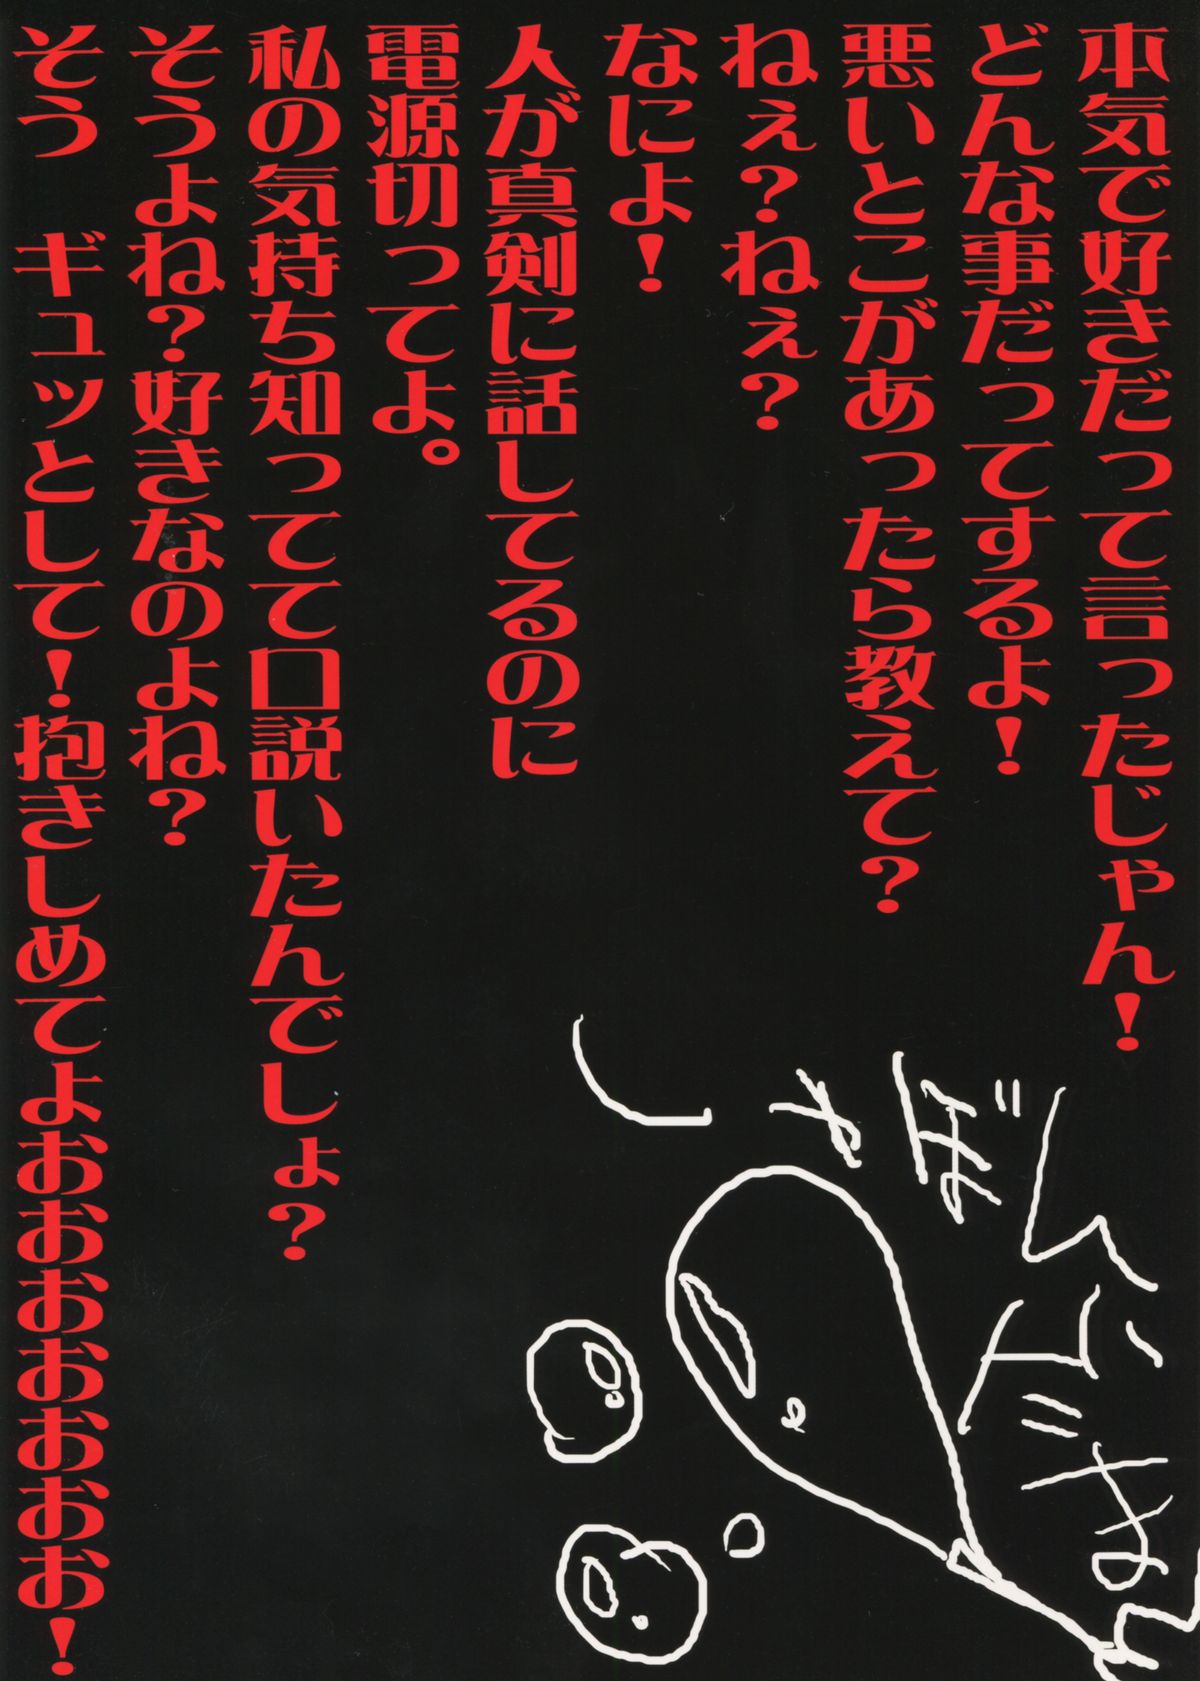 本気で好きだって言ったじゃん!
どんな事だってするよ!
悪いとこがあったら教えて?
ねぇ?ねぇ?
なによ!
人が真剣に話してるのに
電源切ってよ。
私の気持ち知ってて口説いたんでしょ?
そうよね?好きなのよね?
そう　ギュッとして!抱きしめてよおおおおおおお!